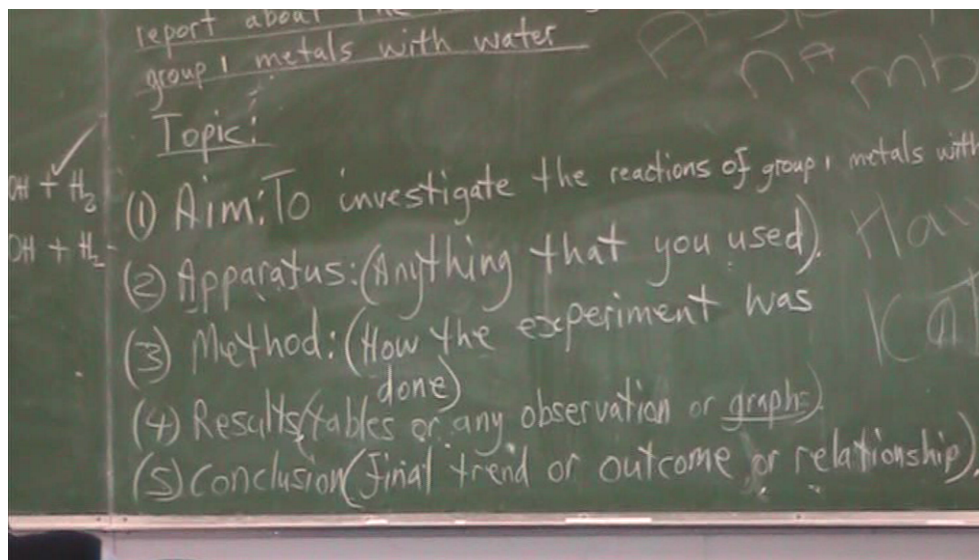 report about the
group 1 metals with water
Topic:
OH + H2
OH + H2
(1) Aim: To investigate the reactions of group 1 metals with
(2) Apparatus: (Anything that you used).
(3) Method: (How the experiment was
done)
(4) Results (tables or any observation or graphs).
(5) Conclusion (final trend or outcome or relationship)
na mb
Hav